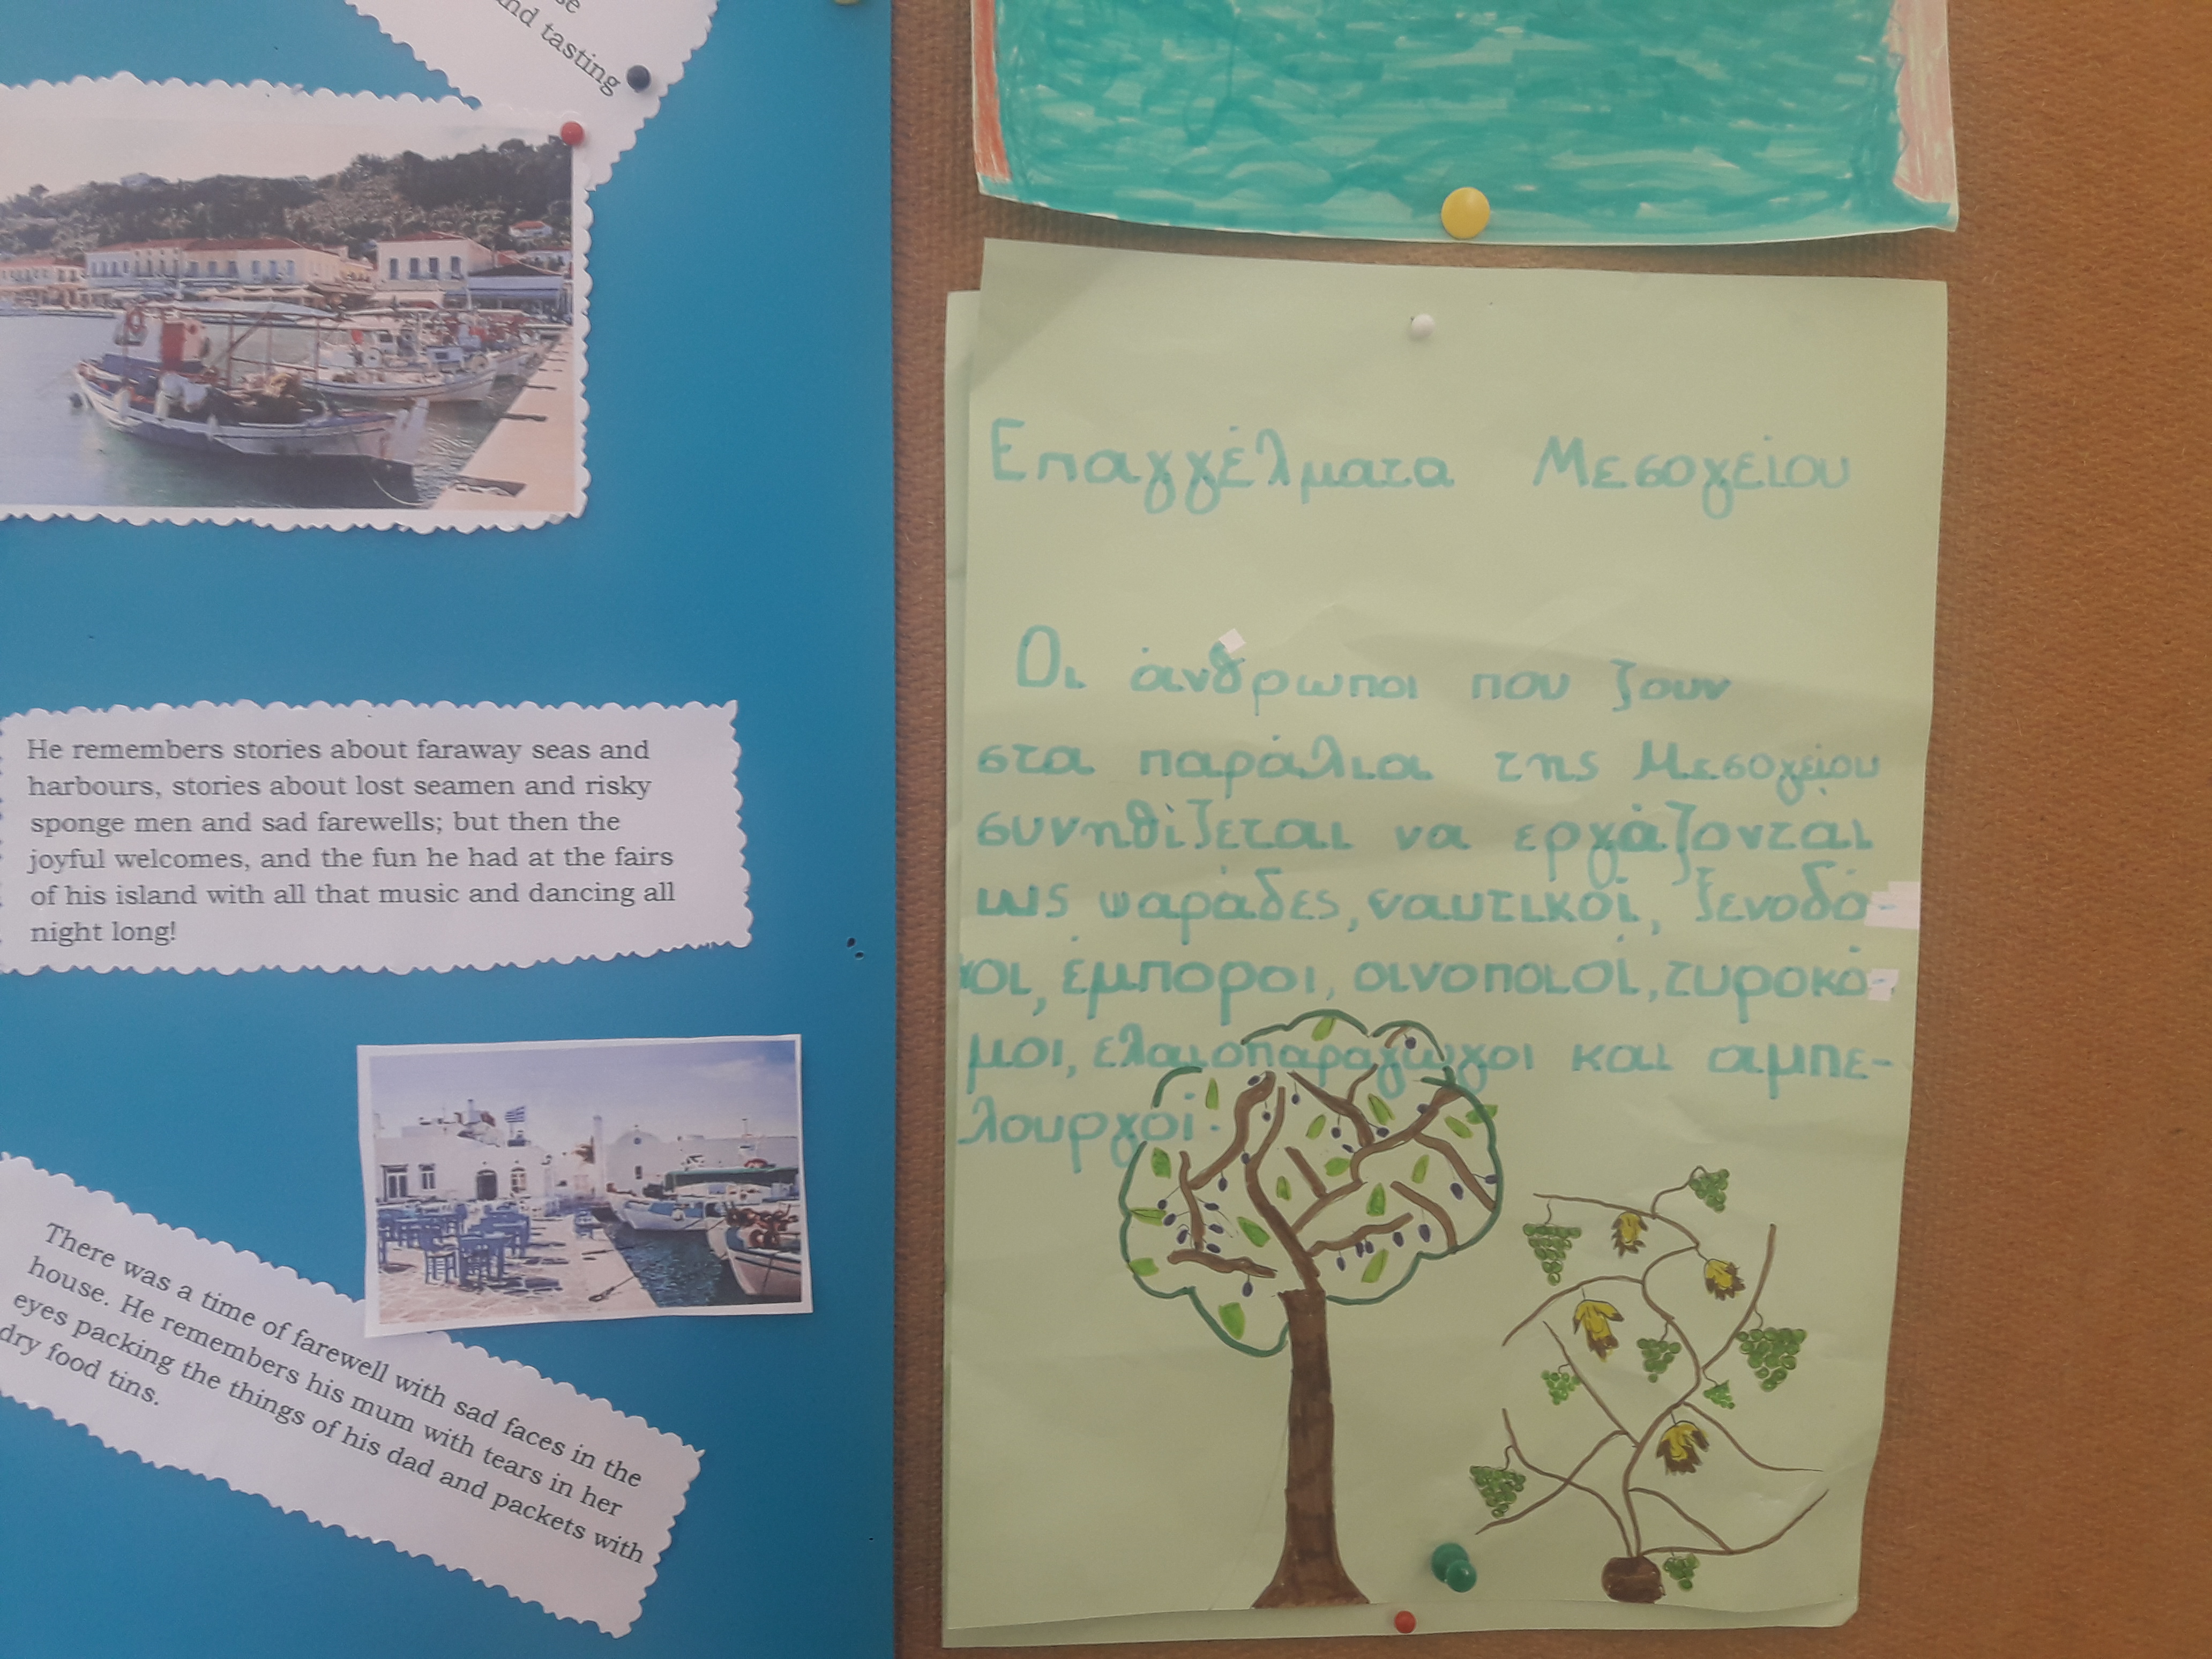 and tasting
He remembers stories about faraway seas and
harbours, stories about lost seamen and risky
sponge men and sad farewells; but then the
joyful welcomes, and the fun he had at the fairs
of his island with all that music and dancing all
night long!
There was a time of farewell with sad faces in the
house. He remembers his mum with tears in her
eyes packing the things of his dad and packets with
dry food tins.
Επαγγέλματα Μεσογείου
Οι άνθρωποι που ζουν
στα παράλια της Μεσογείου
συνηθίζεται να εργάζονται
ως ψαράδες, ναυτικοί, ξενοδό-
χοι, έμποροι, οινοποιοί, τυροκό-
μοι, ελαιοπαραγωγοι και αμπε-
λουργοί.